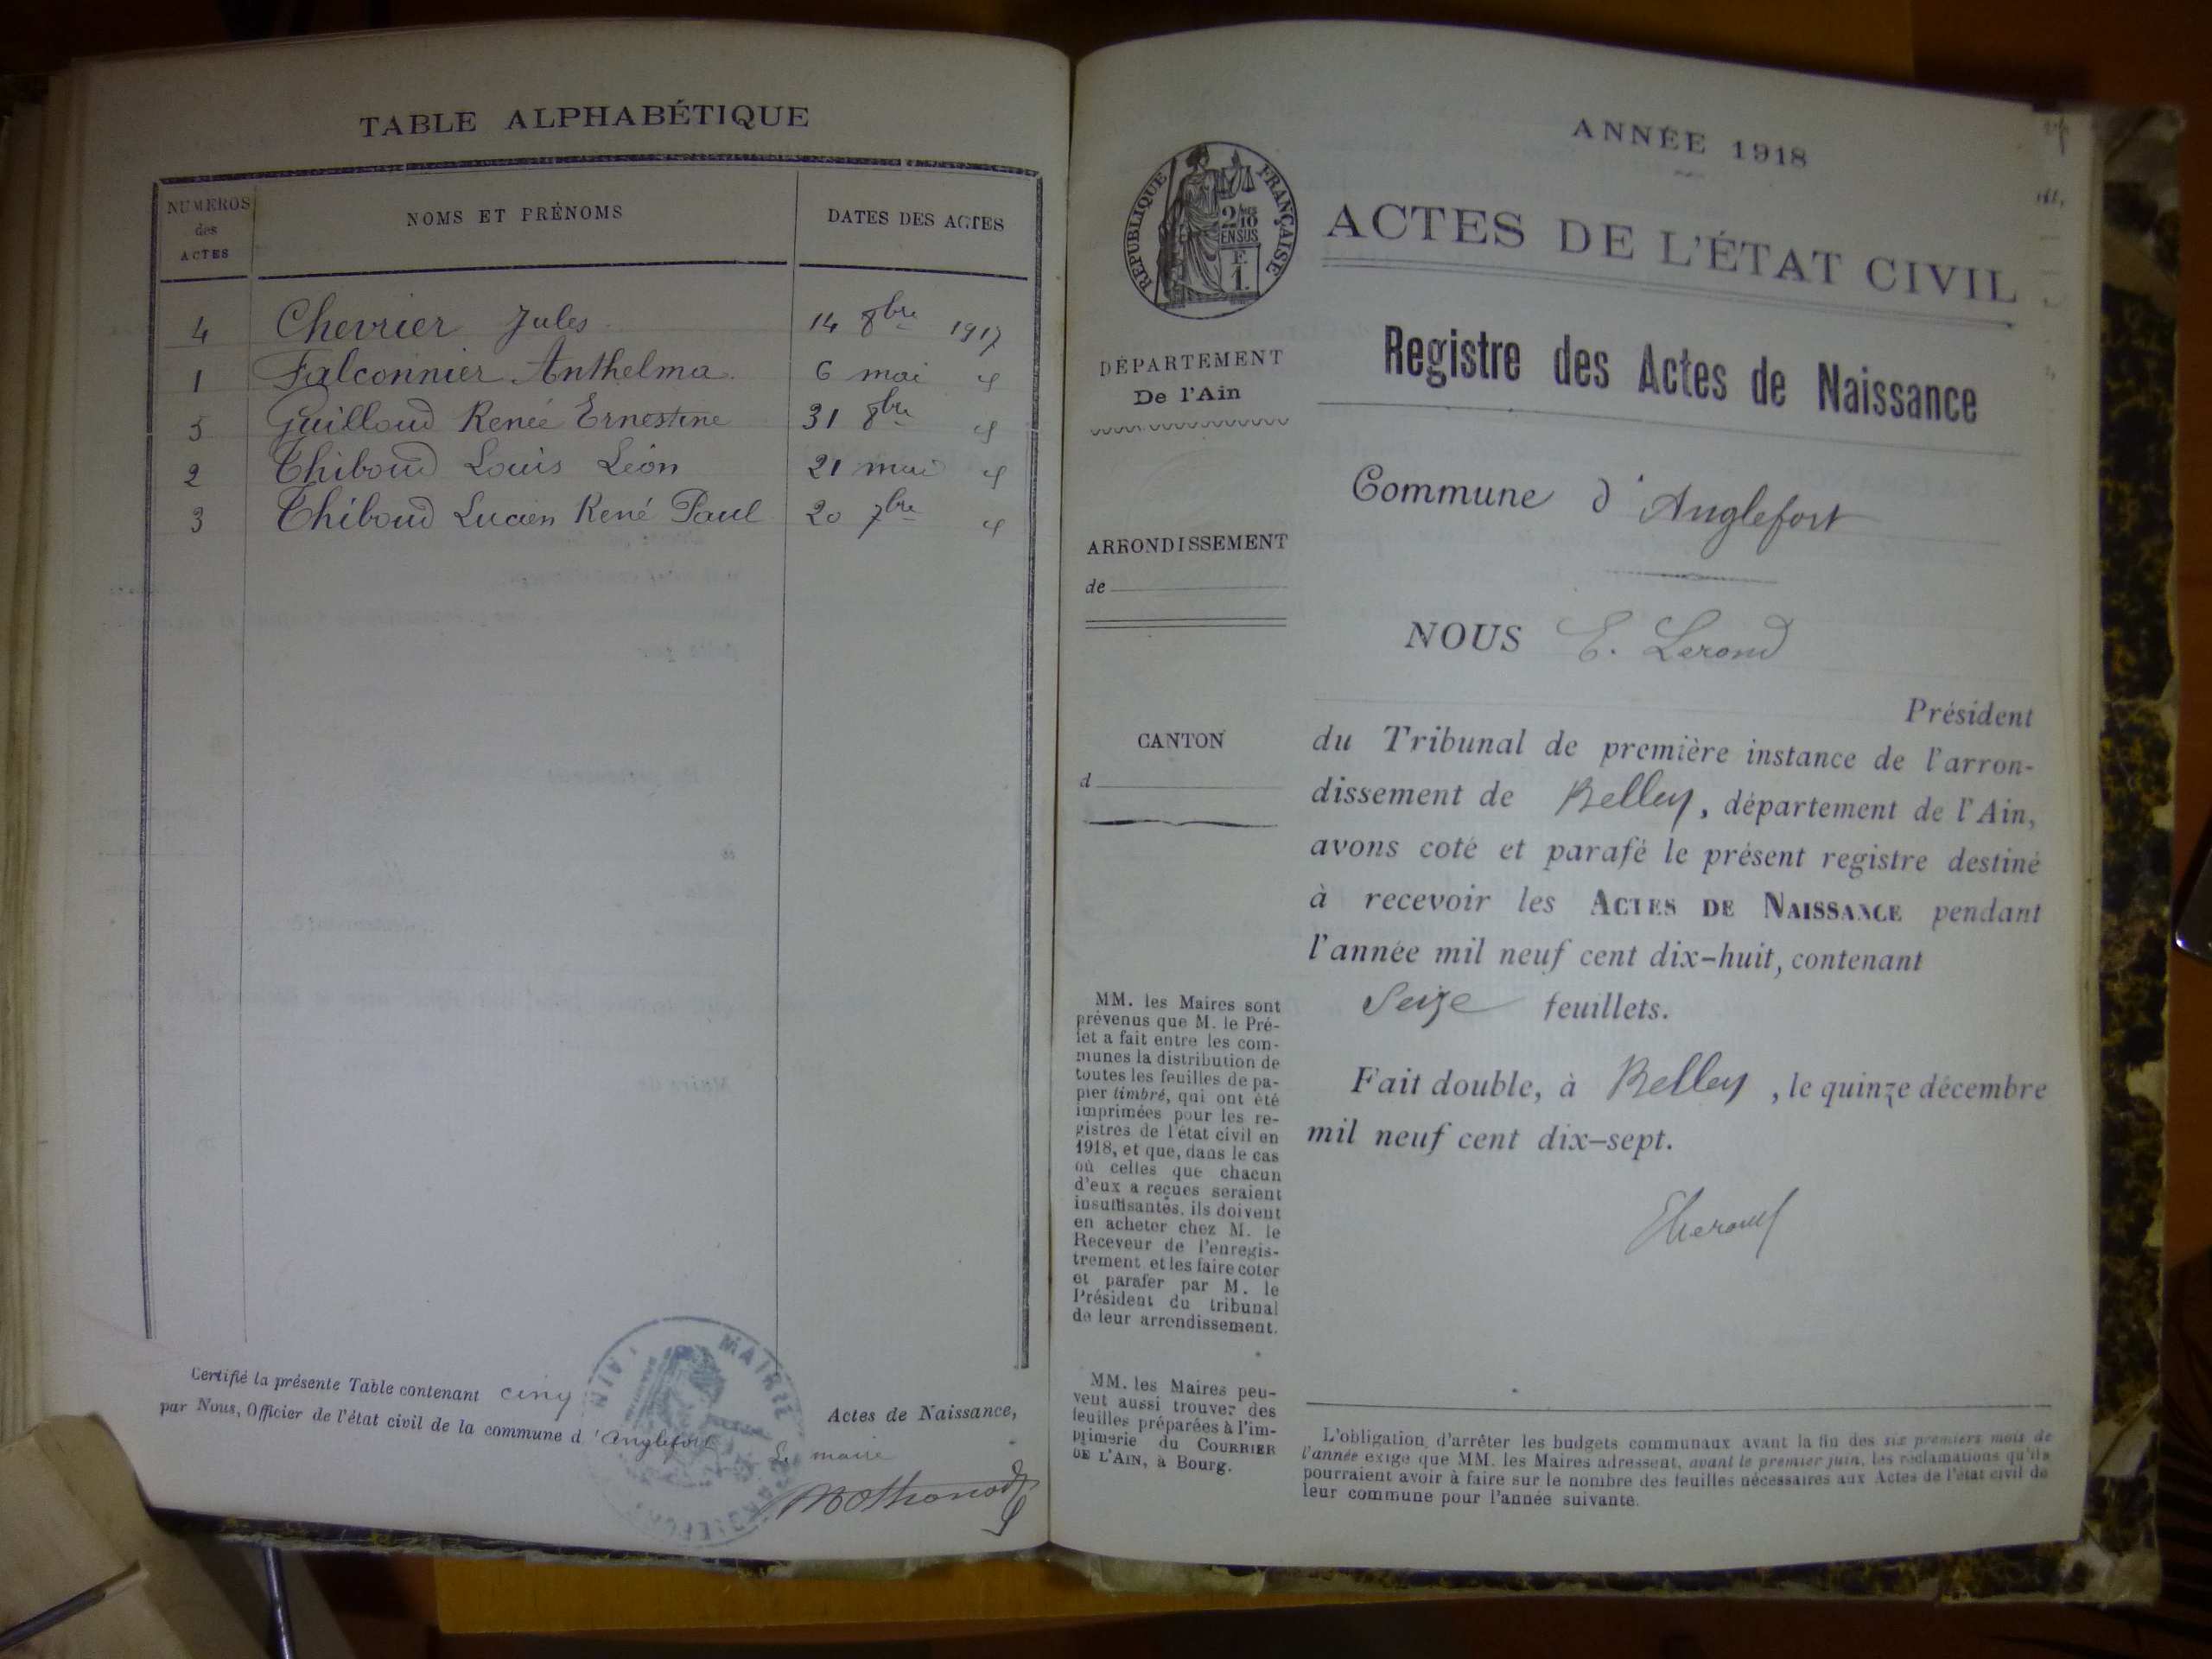 TABLE ALPHABÉTIQUE
NUMÉROS des ACTES
NOMS ET PRÉNOMS
DATES DES ACTES
4 Chevrier Jules 14 8bre 1917
1 Falconnier Anthelma 6 mai
5 Guilloud Renée Ernestine 31 8bre
2 Thiboud Louis Léon 21 mai
3 Thiboud Lucien René Paul 20 7bre
Certifié la présente Table contenant cinq Actes de Naissance,
par Nous, Officier de l'état civil de la commune d'Anglefort
Le maire
MAIRIE
AIN
ANNÉE 1918
RÉPUBLIQUE FRANÇAISE
2/10
EN SUS
F.
1.
ACTES DE L'ÉTAT CIVIL
Registre des Actes de Naissance
DÉPARTEMENT
De l'Ain
ARRONDISSEMENT
de
CANTON
d
Commune d'Anglefort
NOUS E. Lerond
Président
du Tribunal de première instance de l'arron-
dissement de Belley, département de l'Ain,
avons coté et parafé le présent registre destiné
à recevoir les ACTES DE NAISSANCE pendant
l'année mil neuf cent dix-huit, contenant
Seize feuillets.
Fait double, à Belley, le quinze décembre
mil neuf cent dix-sept.
MM. les Maires sont
prévenus que M. le Pré-
fet a fait entre les com-
munes la distribution de
toutes les feuilles de pa-
pier timbré, qui ont été
imprimées pour les re-
gistres de l'état civil en
1918, et que, dans le cas
où celles que chacun
d'eux a reçues seraient
insuffisantes, ils doivent
en acheter chez M. le
Receveur de l'enregis-
trement et les faire coter
et parafer par M. le
Président du tribunal
de leur arrondissement.
MM. les Maires peu-
vent aussi trouver des
feuilles préparées à l'im-
primerie du COURRIER
DE L'AIN, à Bourg.
L'obligation d'arrêter les budgets communaux avant la fin des six premiers mois de
l'année exige que MM. les Maires adressent, avant le premier juin, les réclamations qu'ils
pourraient avoir à faire sur le nombre des feuilles nécessaires aux Actes de l'état civil de
leur commune pour l'année suivante.